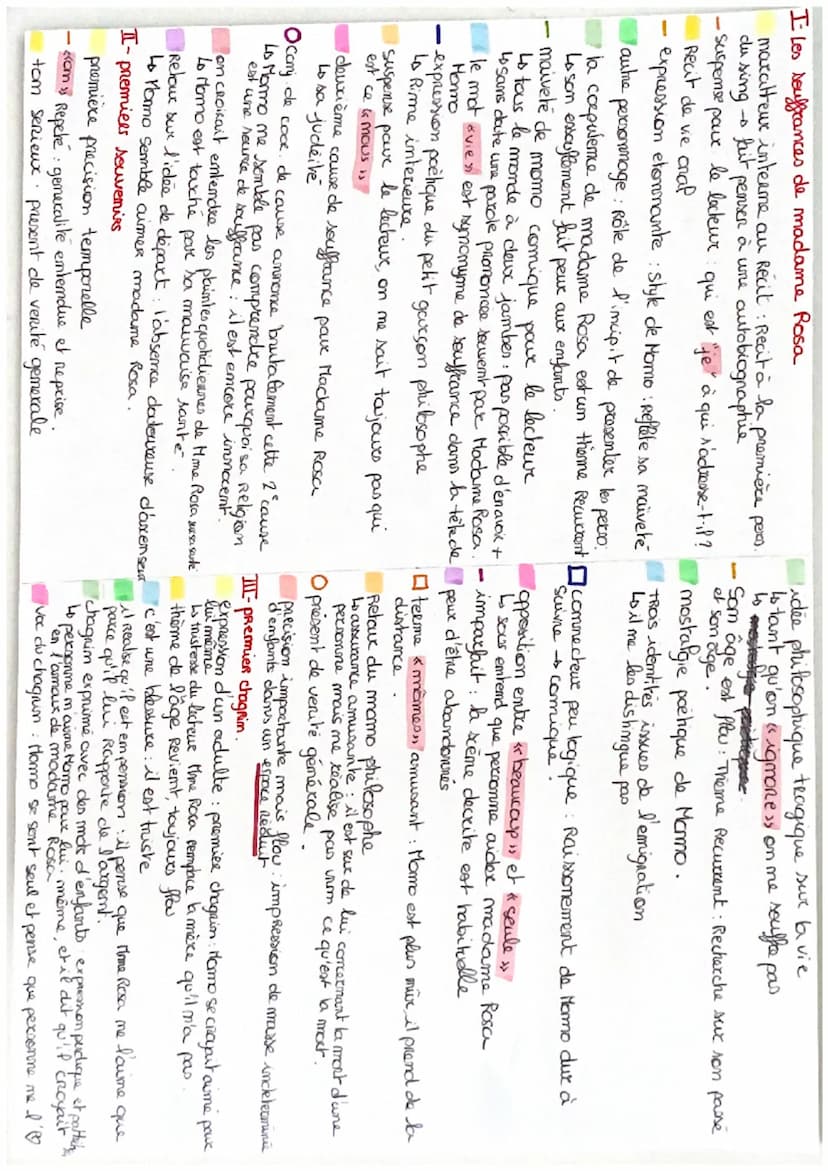 I- Les souffrances de madame Rosa
narrateur interne au Récit : Récit à la première pers.
du sing → fait penser à une autobiographie
- suspense pour le lecteur : qui est "je" à qui s'adresse-t-il ?
Récit de vie oral
- expression etonnante : style de Momo : reflète sa naiveté
autre personnage : Rôle de l'incipit de presenter les perso.
la corpulence de madame Rosa est un thème récurrent
↳ son essouflement fait peur aux enfants.
- naiveté de momo comique pour le lecteur
↳ tous le monde à deux jambes : pas possible d'en avoir +
↳ sans doute une parole prononcée souvent par Madame Rosa.
le mot « vie » est synonyme de souffrance dans la tête de
Momo
- expression poètique du petit garçon philosophe
↳ Rime interieure.
suspense pour le lecteur, on ne sait toujours pas qui
est ce « nous »
deuxième cause de souffrance pour Madame Rosa
↳ sa judéité
Conj de coor. de cause annonce brutalement cette 2e cause
↳ Momo ne semble pas comprendre pourquoi sa religion
est une source de souffrance : il est encore innocent.
on croirait entendre les plaintes quotidiennes de Mme Rosa sur sa santé
↳ Momo est touché par sa mauvaise santé.
Retour sur l'idée de départ : l'absence douloureuse d'ascenseur
↳ Momo semble aimer madame Rosa.
II- premiers souvenirs
première précision temporelle
- « on » Répété : généralité entendue et reprise.
tom serieux. présent de verité generale
idée philosophique tragique sur la vie
↳ tant qu'on « ignore » on ne souffre pas
↳
- Son âge est flou : Thème Recurrent : Recherche sur son passé
et son âge.
nostalgie poètique de Momo.
TROIS identités issues de l'emigration
↳ il ne les distingue pas
connecteur peu logique : Raisonnement de Momo dur à
suivre → comique
opposition entre « beaucoup » et « seule »
↳ sous entend que personne aider madame Rosa
- imparfait : la scène decrite est habituelle
peur d'être abandonnés
terme « mômes » amusant : Momo est plus mûr, il prend de la
distance.
Retour du momo philosophe
↳ assurance amusante : il est sur de lui concernant la mort d'une
personne mais ne réalise pas vrm ce qu'est la mort.
présent de verité générale.
précision importante mais flou : impression de masse indeterminée
d'enfants dans un espace réduit
III- premier chagrin.
expression d'un adulte : premier chagrin : Momo se croyait aimé pour
lui même
↳ tristesse du lecteur Mme Rosa remplace la mère qu'il n'a pas.
thème de l'âge revient, toujours flou
c'est une blessure : il est triste
il réalise qu'il est en pension : il pense que Mme Rosa ne l'aime que
parce qu'il lui Rapporte de l'argent.
chagrin exprimé avec des mots d'enfants : expression
↳ personne n'aime Momo pour lui-même, et il dit qu'il croyait
en l'amour de madame Rosa
voc du chagrin : Momo se sent seul et pense que personne ne l'♡